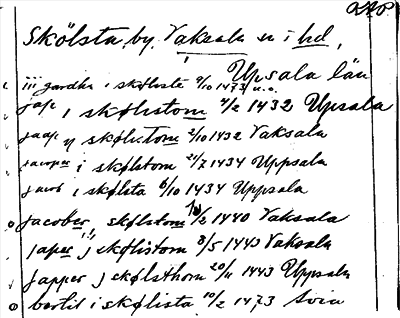 Skölsta, by, Vaksala sn i hd,
Upsala län
iij gardha i skølista 9/10 1473 u.o.
jap i skølistom 7/2 1432 Upsala
jaap y skølistom 2/10 1432 Vaksala
jacoper i skølstom 21/7 1434 Uppsala
jacob i skølsta 6/10 1434 Uppsala
jacober, skølstom 1/2 1440 Vaksala
japer j skølistom 3/5 1443 Vaksala
japper j skølsthom 20/11 1443 Uppsala
bertil i skølista 10/2 1473